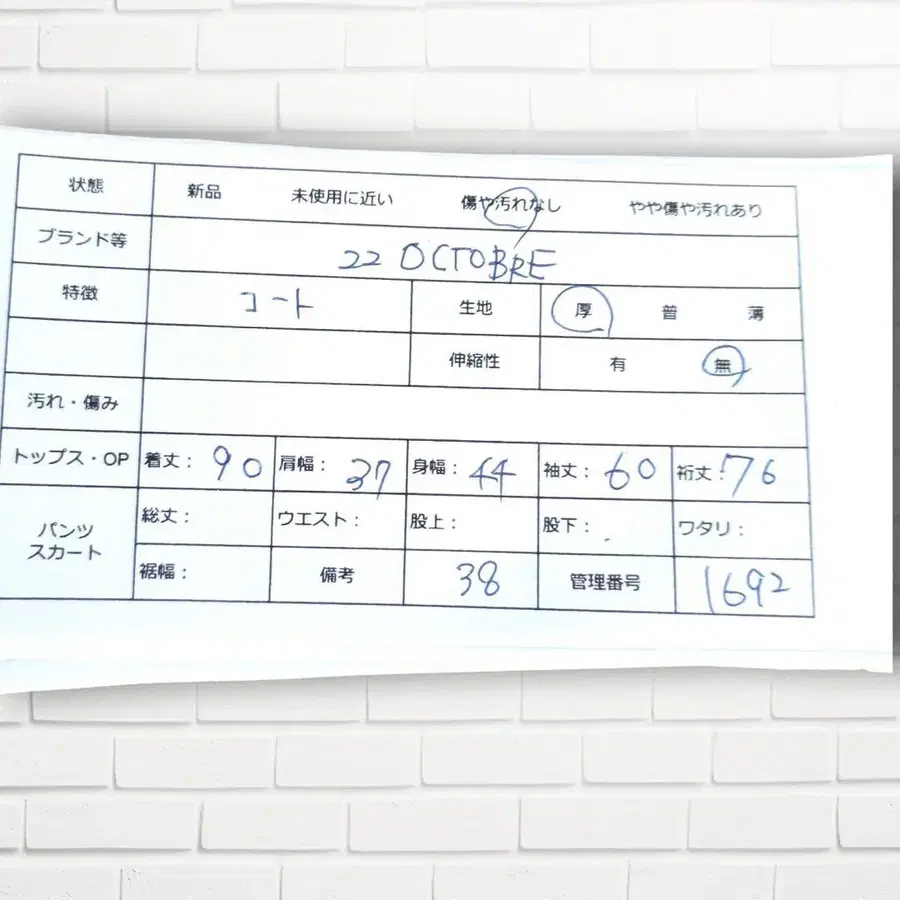 状態 新品 未使用に近い 傷や汚れなし やや傷や汚れあり
ブランド等 22 OCTOBRE
特徴 コート 生地 厚 普 薄
伸縮性 有 無
汚れ・傷み
トップス・OP 着丈： 90 肩幅： 37 身幅： 44 袖丈： 60 裄丈： 76
パンツ
スカート
総丈： ウエスト： 股上： 股下： ワタリ：
裾幅： 備考 38 管理番号 1692